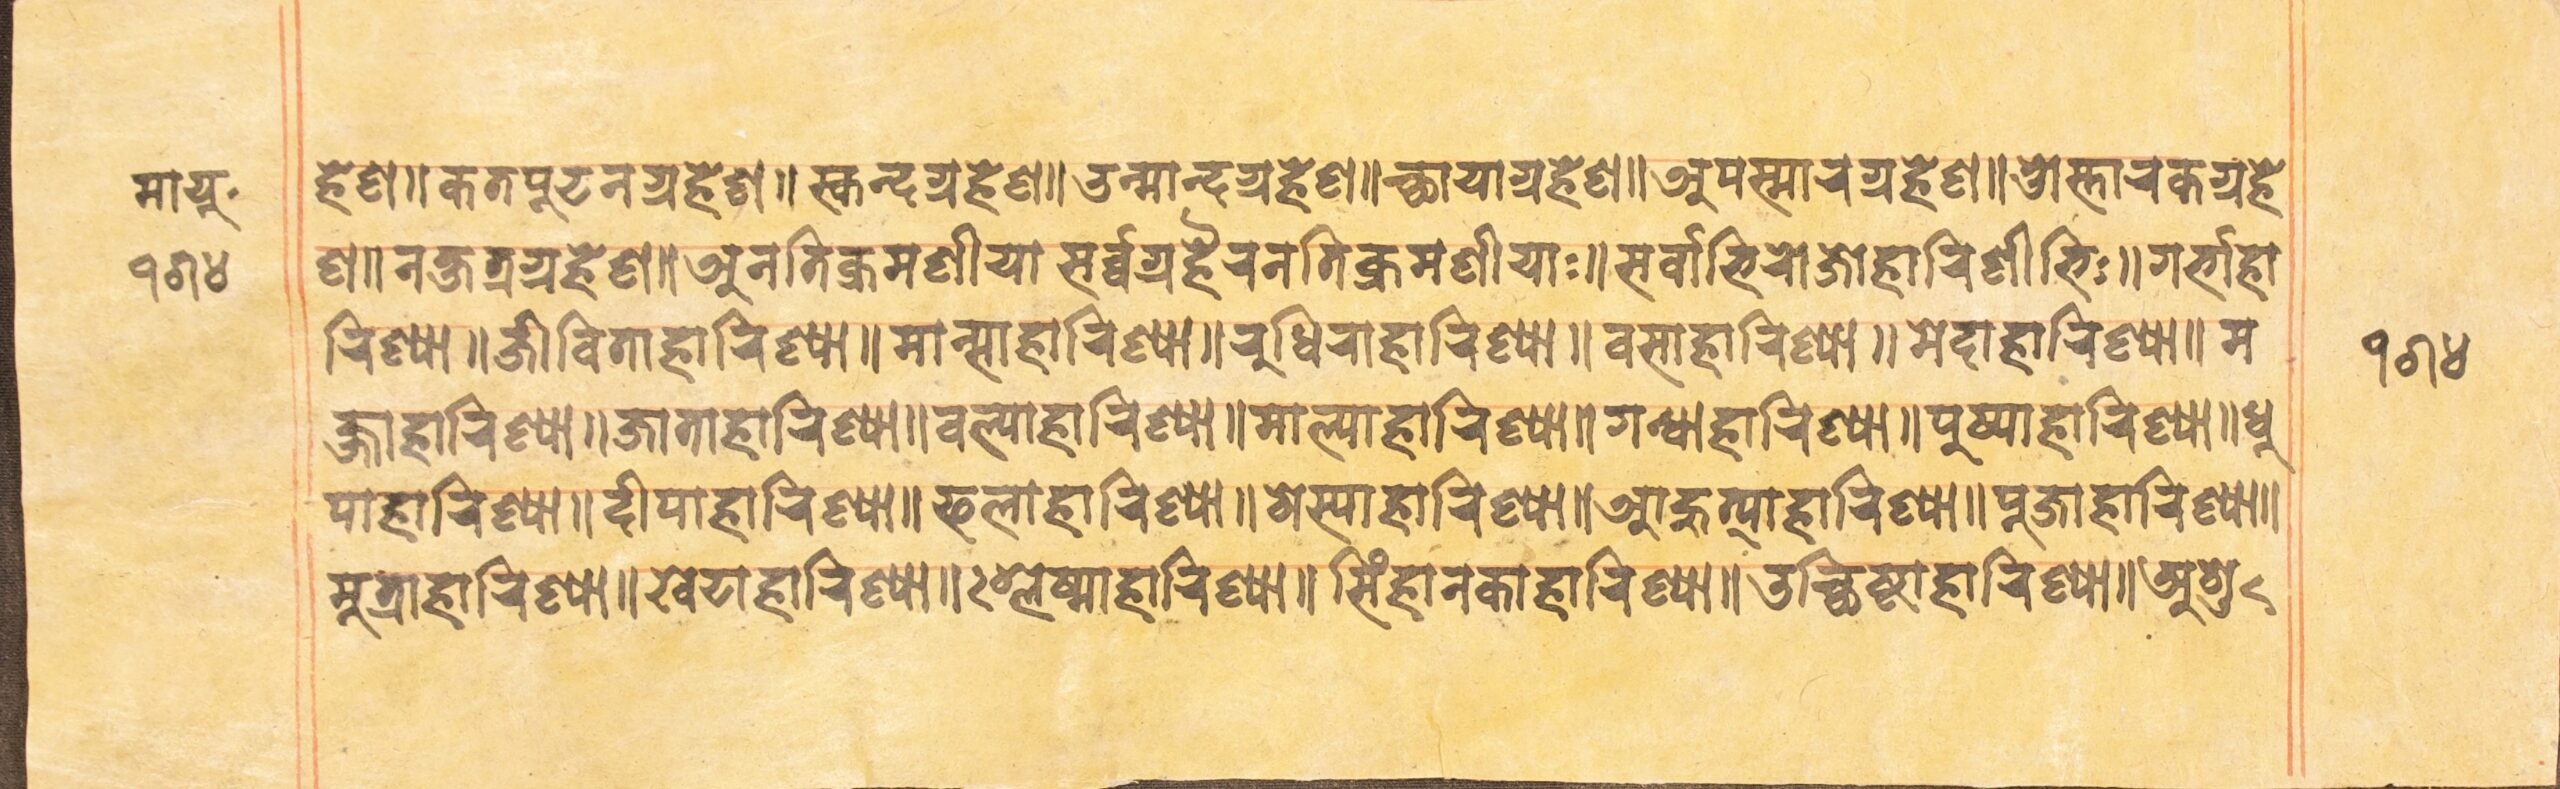 मायु॰
१७४
हेण॥ कतपुटनग्रहेण॥ स्कन्दग्रहेण॥ उन्मान्दग्रहेण॥ च्छायाग्रहेण॥ अपस्मारग्रहेण॥ ओस्तारकग्रहे
ण॥ नक्षत्रग्रहेण॥ अनतिक्रमणीया सर्व्वग्रहैरनतिक्रमणीयाः॥ सर्वाभिरोजोहारिणीभिः॥ गर्भाहा
रिण्या॥ जीविताहारिण्या॥ मान्साहारिण्या॥ रुधिराहारिण्या॥ वसाहारिण्या॥ मेदाहारिण्या॥ म
१७४
ज्जाहारिण्या॥ जाताहारिण्या॥ वल्याहारिण्या॥ माल्याहारिण्या॥ गन्धाहारिण्या॥ पुष्पाहारिण्या॥ धु
पाहारिण्या॥ दीपाहारिण्या॥ फलाहारिण्या॥ शेस्याहारिण्या॥ आहुत्याहारिण्या॥ पूजाहारिण्या॥
मुत्राहारिण्या॥ खेटाहारिण्या॥ श्लेष्माहारिण्या॥ सिंहानकाहारिण्या॥ उच्छिष्टाहारिण्या॥ अशु